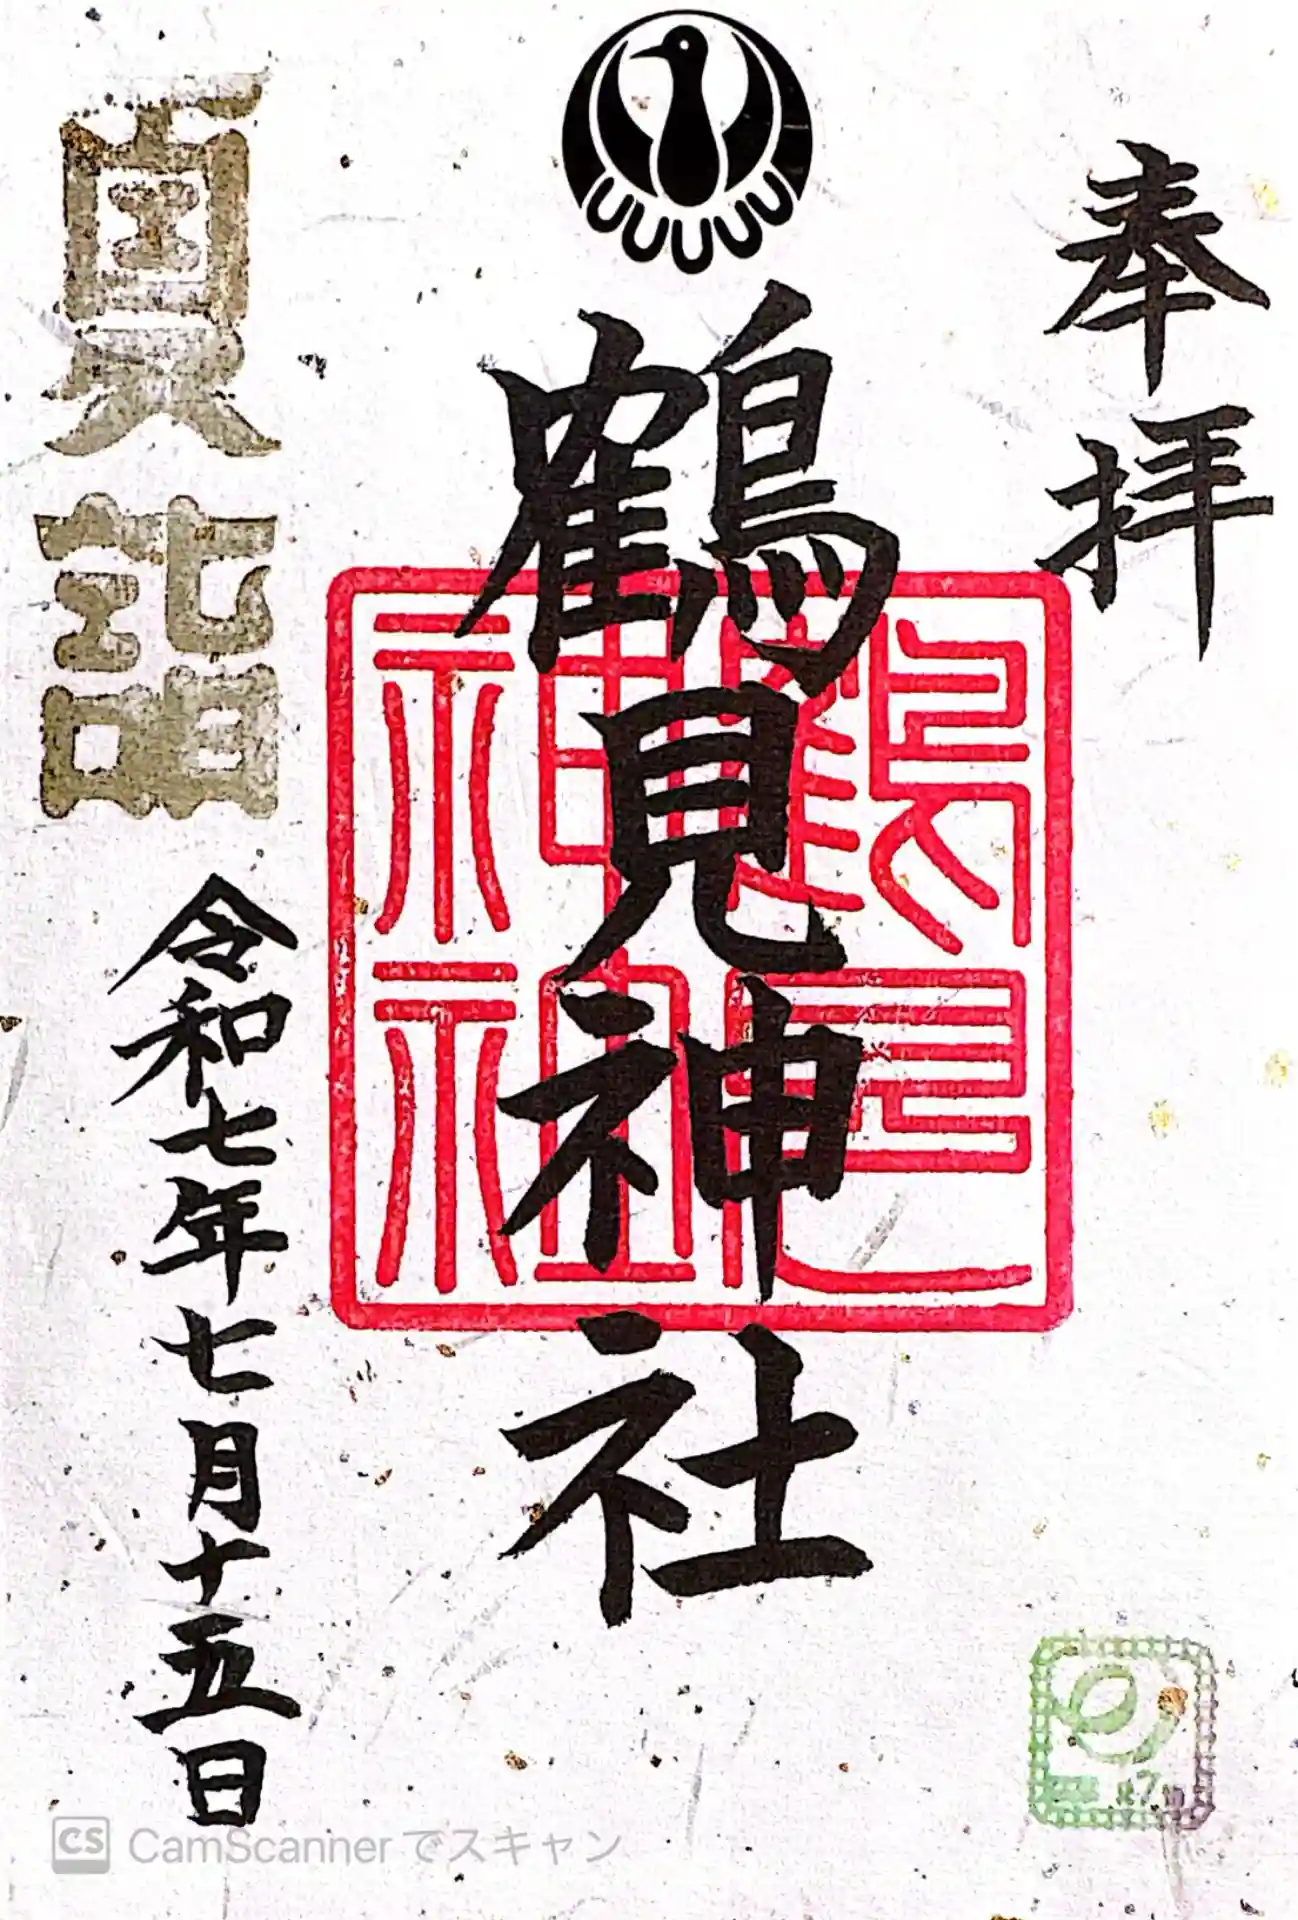 奉拝
鶴見神社
鶴見神社神社
夏詣
令和七年七月十五日
CS CamScannerでスキャン